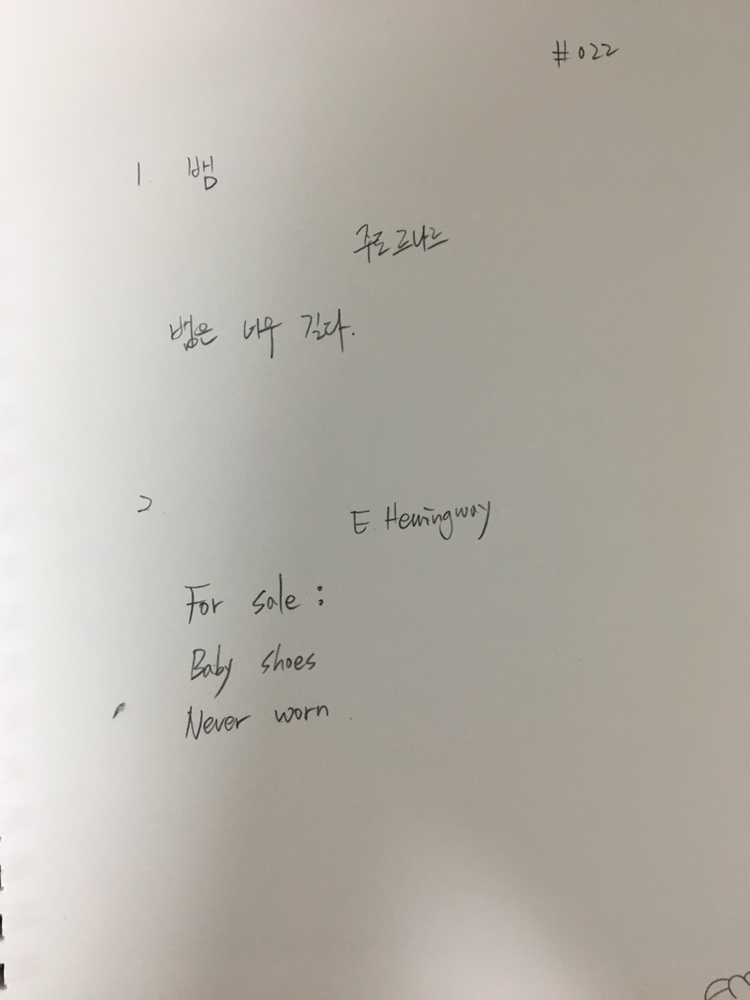 #022
1. 뱀
주르 르나르
뱀은 너무 길다.
2.
E. Hemingway
For sale :
Baby shoes
Never worn.